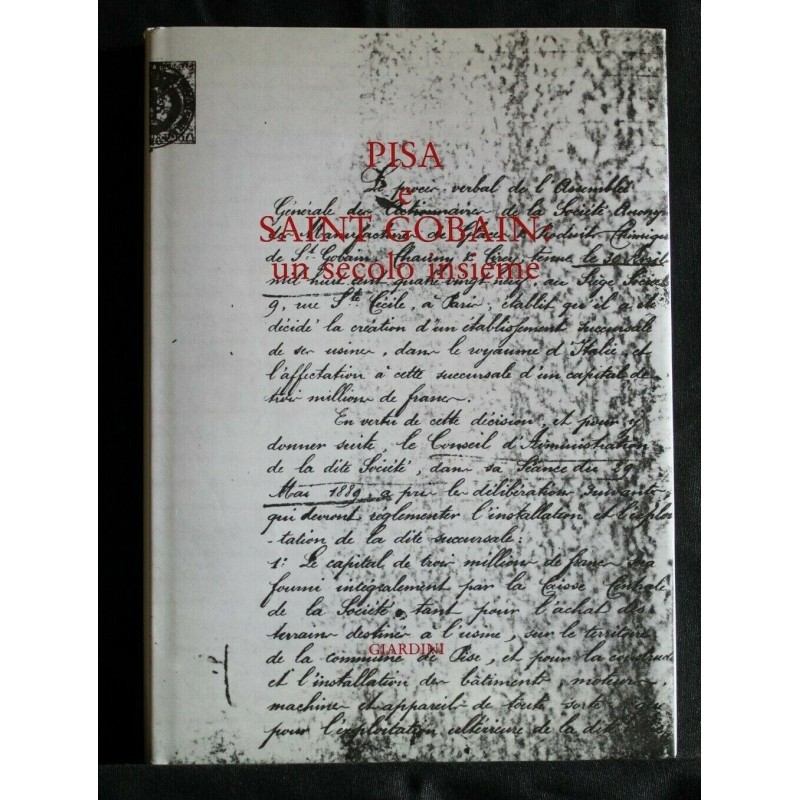 PISA
e
SAINT GOBAIN:
un secolo insieme
Le procès-verbal de l'Assemblée
Générale des Actionnaires de la Société Anonyme
des Manufactures de Glaces & Produits Chimiques
de St. Gobain, Chauny & Cirey tenue le 30 Avril
mil huit cent quatre vingt neuf au Siège Social
9, rue Ste. Cécile, à Paris, établit qu'il a été
décidé la création d'un établissement succursale
de ses usines, dans le royaume d'Italie et
l'affectation à cette succursale d'un capital de
trois millions de francs.
En vertu de cette décision et pour y
donner suite, le Conseil d'Administration
de la dite Société, dans sa Séance du 29
Mai 1889 a pris les délibérations suivantes
qui devront réglementer l'installation et l'exploi
-tation de la dite succursale:
1º Le capital de trois millions de francs sera
fourni intégralement par la Caisse Centrale
de la Société, tant pour l'achat des
terrains destinés à l'usine, sur le territoire
de la commune de Pise, et pour la construc
et l'installation des bâtiments, moteurs,
machines et appareils de toute sorte, que
pour l'exploitation ultérieure de la dite
GIARDINI